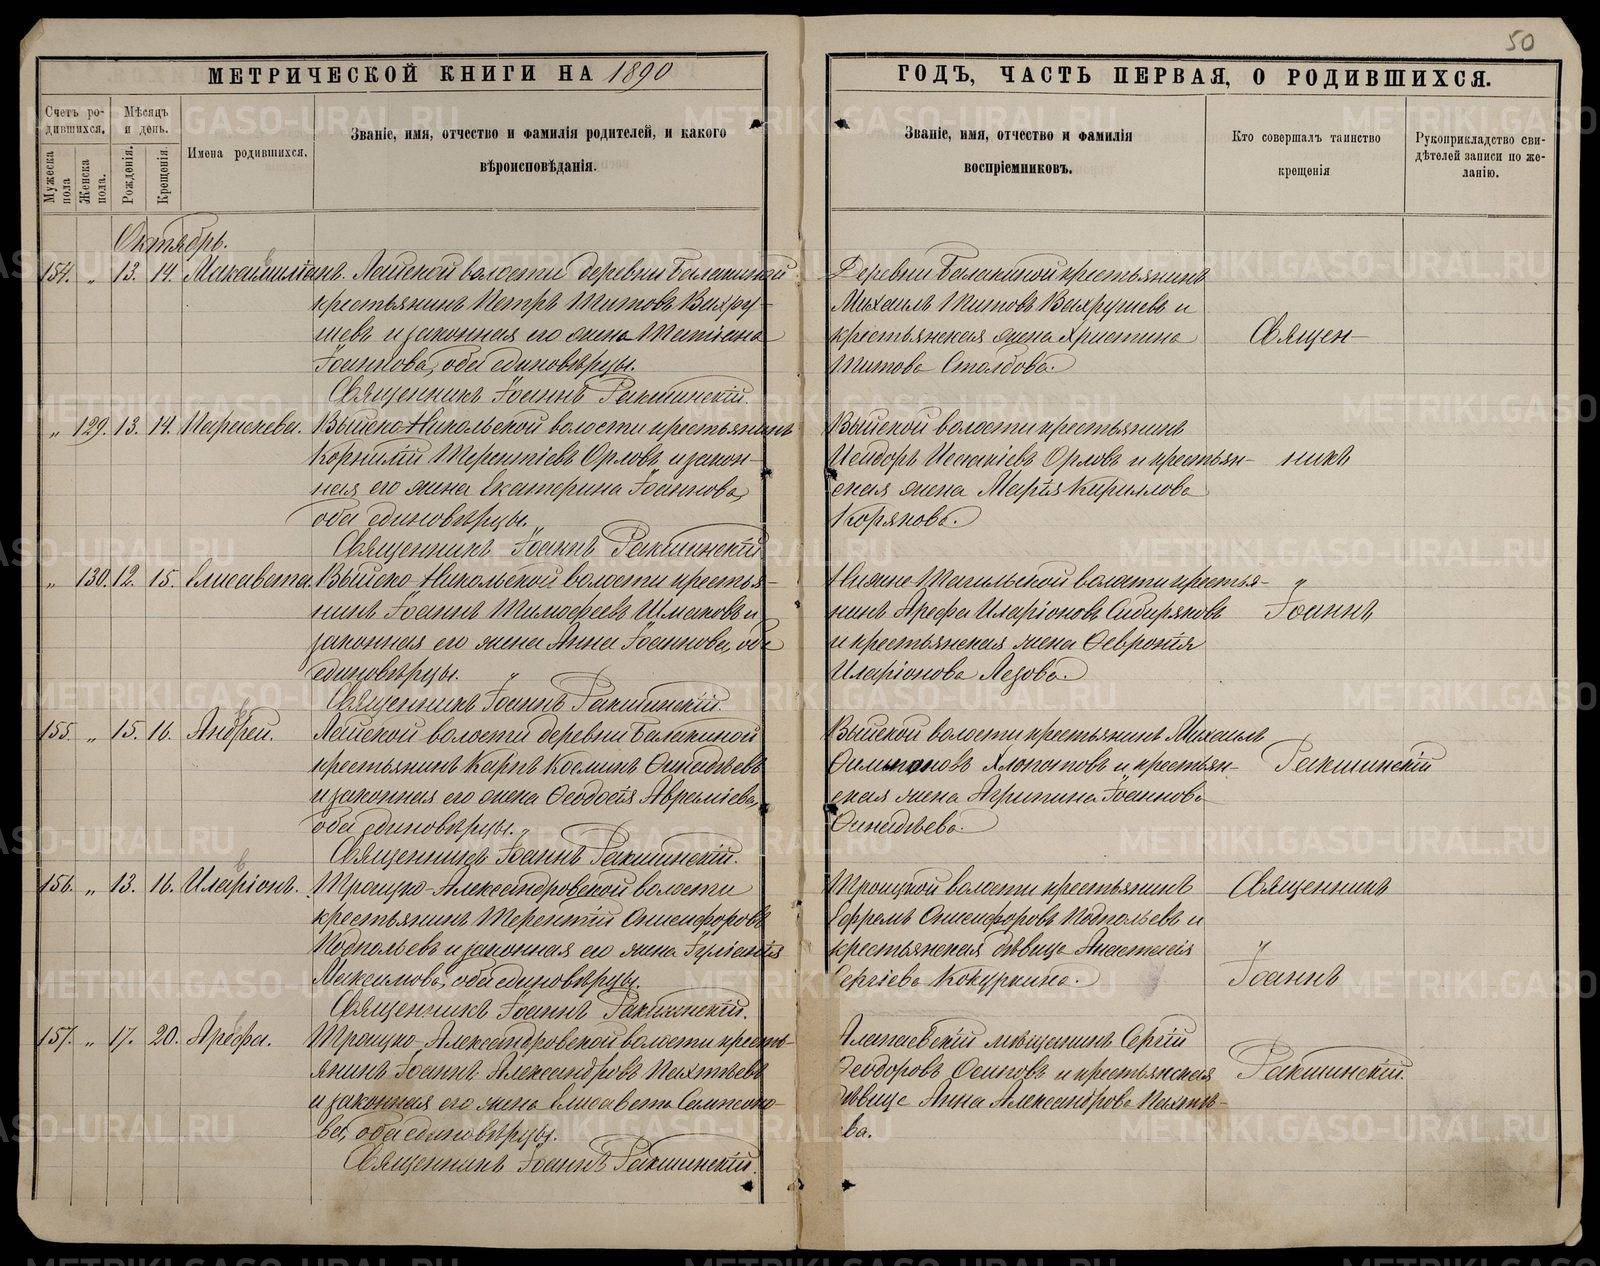 50
МЕТРИЧЕСКОЙ КНИГИ НА 1890
ГОДЪ, ЧАСТЬ ПЕРВАЯ, О РОДИВШИХСЯ.
Счетъ ро-
дившихся.
Мужеска
пола
Женска
пола.
Мѣсяцъ
и день.
Рожденія.
Крещенія.
Имена родившихся.
Званіе, имя, отчество и фамилія родителей, и какого
вѣроисповѣданія.
Званіе, имя, отчество и фамилія
воспріемниковъ.
Кто совершалъ таинство
крещенія
Рукоприкладство сви-
дѣтелей записи по же-
ланію.
Октябрь.
154. „ 13. 14. Максимиліанъ. Лайской волости деревни Балакиной
крестьянинъ Петръ Титовъ Вахру-
шевъ и законная его жена Татіана
Іоаннова, оба единовѣрцы.
Священникъ Іоаннъ Ракшинскій.
Деревни Балакиной крестьянинъ
Михаилъ Титовъ Вахрушевъ и
крестьянская жена Христина
Титова Столбова.
Священ-
„ 129. 13. 14. Параскева. Выйско-Никольской волости крестьянинъ
Корнилій Терентіевъ Орловъ и закон-
ная его жена Екатерина Іоаннова,
оба единовѣрцы.
Священникъ Іоаннъ Ракшинскій
Выйской волости крестьянинъ
Исидоръ Исаакіевъ Орловъ и крестьян-
ская жена Марія Кириллова
Корякова.
никъ
„ 130. 12. 15. Елисавета. Выйско-Никольской волости крестья-
нинъ Іоаннъ Тимофеевъ Шмаковъ и
законная его жена Анна Іоаннова, оба
единовѣрцы.
Священникъ Іоаннъ Ракшинскій
Нижне-Тагильской волости крестья-
нинъ Арефа Иларіоновъ Сибиряковъ
и крестьянская жена Февронія
Иларіонова Лезова.
Іоаннъ
155. „ 15. 16. Андрей. Лайской волости деревни Балакиной
крестьянинъ Карпъ Косминъ Ѳинадѣевъ
и законная его жена Ѳеодосія Авраміева,
оба единовѣрцы.
Священникъ Іоаннъ Ракшинскій.
Выйской волости крестьянинъ Михаилъ
Филипповъ Хлопотовъ и крестьян-
ская жена Агрипина Іоаннова
Ѳинадѣева.
Ракшинскій
156. „ 13. 16. Иларіонъ. Троицко-Александровской волости
крестьянинъ Терентій Онисифоровъ
Подпольевъ и законная его жена Іуліанія
Максимова, оба единовѣрцы.
Священникъ Іоаннъ Ракшинскій.
Троицкой волости крестьянинъ
Ефремъ Онисифоровъ Подпольевъ и
крестьянская дѣвица Анастасія
Сергіева Кокуркина.
Священникъ
Іоаннъ
157. „ 17. 20. Арефа. Троицко-Александровской волости кресть-
янинъ Іоаннъ Александровъ Пахтѣевъ
и законная его жена Елисавета Сампсоно-
ва, оба единовѣрцы.
Священникъ Іоаннъ Ракшинскій.
Алапаевскій мѣщанинъ Сергій
Ѳеодоровъ Осиповъ и крестьянская
дѣвица Анна Александрова Пахтѣ-
ева.
Ракшинскій.
METRIKI.GASO-URAL.RU